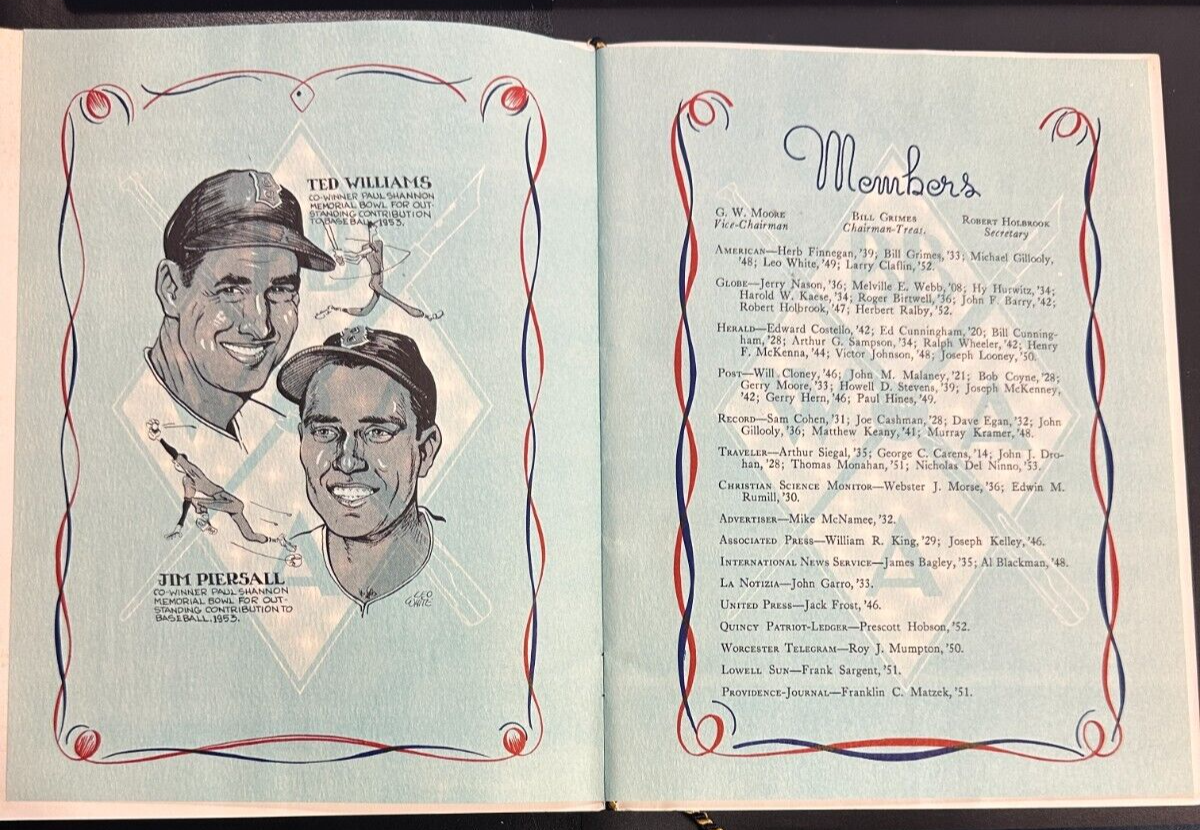 TED WILLIAMS
CO-WINNER PAUL SHANNON
MEMORIAL BOWL FOR OUT-
STANDING CONTRIBUTION
TO BASEBALL, 1953.
JIM PIERSALL
CO-WINNER PAUL SHANNON
MEMORIAL BOWL FOR OUT-
STANDING CONTRIBUTION TO
BASEBALL, 1953.
LEO
WHITE
Members
G. W. Moore
Vice-Chairman
Bill Grimes
Chairman-Treas.
Robert Holbrook
Secretary
American—Herb Finnegan, '39; Bill Grimes, '33; Michael Gillooly,
'48; Leo White, '49; Larry Claflin, '52.
Globe—Jerry Nason, '36; Melville E. Webb, '08; Hy Hurwitz, '34;
Harold W. Kaese, '34; Roger Birtwell, '36; John F. Barry, '42;
Robert Holbrook, '47; Herbert Ralby, '52.
Herald—Edward Costello, '42; Ed Cunningham, '20; Bill Cunning-
ham, '28; Arthur G. Sampson, '34; Ralph Wheeler, '42; Henry
F. McKenna, '44; Victor Johnson, '48; Joseph Looney, '50.
Post—Will Cloney, '46; John M. Malaney, '21; Bob Coyne, '28;
Gerry Moore, '33; Howell D. Stevens, '39; Joseph McKenney,
'42; Gerry Hern, '46; Paul Hines, '49.
Record—Sam Cohen, '31; Joe Cashman, '28; Dave Egan, '32; John
Gillooly, '36; Matthew Keany, '41; Murray Kramer, '48.
Traveler—Arthur Siegal, '35; George C. Carens, '14; John J. Dro-
han, '28; Thomas Monahan, '51; Nicholas Del Ninno, '53.
Christian Science Monitor—Webster J. Morse, '36; Edwin M.
Rumill, '30.
Advertiser—Mike McNamee, '32.
Associated Press—William R. King, '29; Joseph Kelley, '46.
International News Service—James Bagley, '35; Al Blackman, '48.
La Notizia—John Garro, '33.
United Press—Jack Frost, '46.
Quincy Patriot-Ledger—Prescott Hobson, '52.
Worcester Telegram—Roy J. Mumpton, '50.
Lowell Sun—Frank Sargent, '51.
Providence-Journal—Franklin C. Matzek, '51.